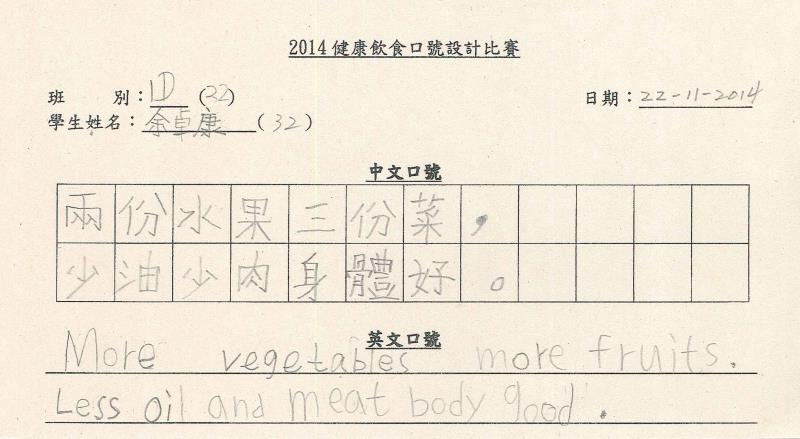 2014 健康飲食口號設計比賽
班 別：1D (32) 日期：22-11-2014
學生姓名：余卓康 (32)
中文口號
兩份水果三份菜，
少油少肉身體好。
英文口號
More vegetables more fruits.
Less oil and meat body good.